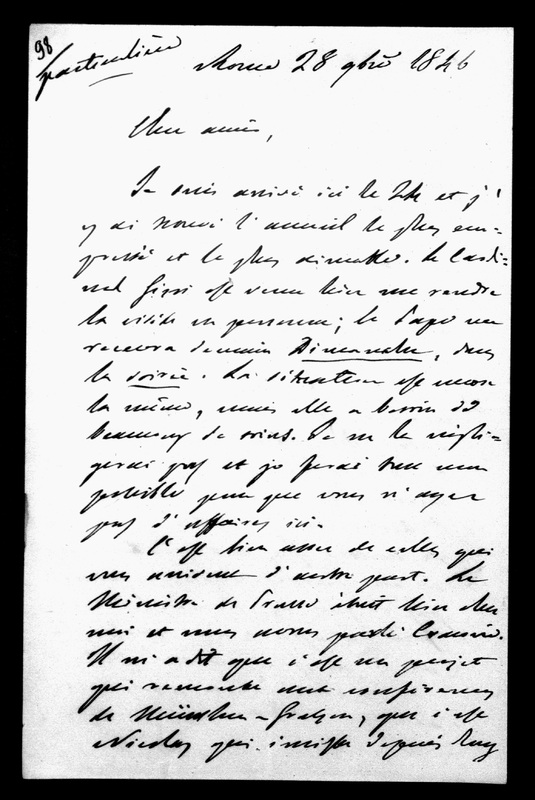 98
particulière
Rome 28 9bre 1846
Cher ami,
Je suis arrivé ici le 24 et j'
y ai trouvé l'accueil le plus em-
pressé et le plus aimable. Le Cardi-
nal Gizzi est venu hier me rendre
la visite en personne; le Pape me
recevra demain Dimanche, dans
la soirée. La situation est encore
la même, mais elle a besoin de
beaucoup de soins. Je ne la négli-
gerai pas et je ferai tout mon
possible pour que vous n'ayez
pas d'affaires ici.
C'est bien assez de celles qui
vous arrivent d'autre part. Le
Ministre de Prusse était hier chez
moi et nous avons parlé Cracovie.
Il m'a dit que c'est un projet
qui remonte aux conférences
de München-Gratzen, que c'est
Nicolas qui insiste depuis long